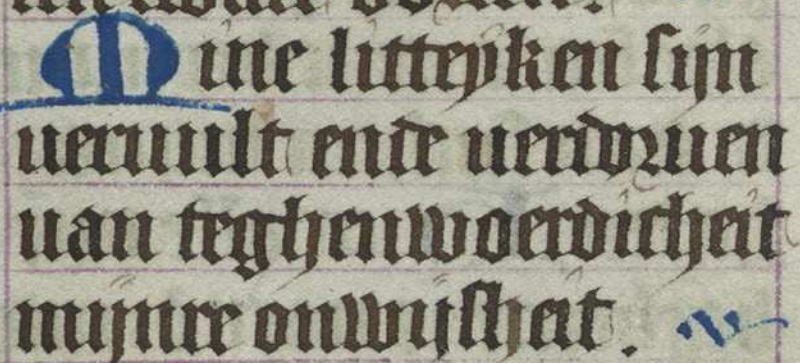 Mine litteyken sijn
veruuilt ende verdoruen
van teghenwoerdicheit
mijnre onwijsheit.